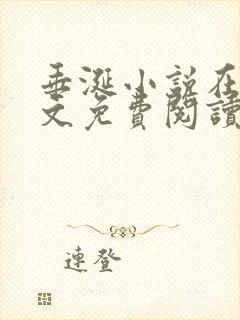 垂涎小說在
文免費閱讀
連登